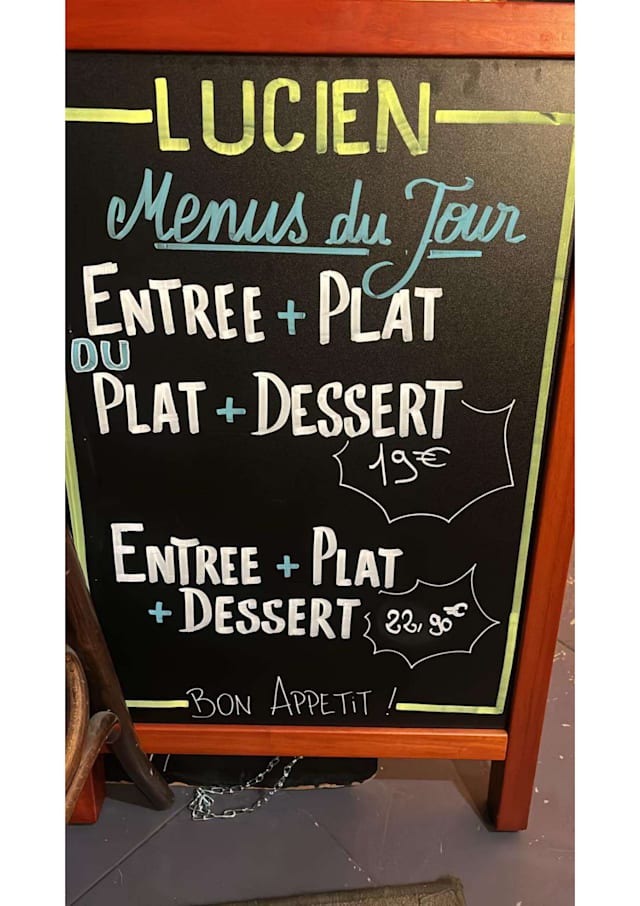 LUCIEN
Menus du Jour
ENTREE + PLAT
OU
PLAT + DESSERT
19€
ENTREE + PLAT
+ DESSERT 22,90€
BON APPETIT !